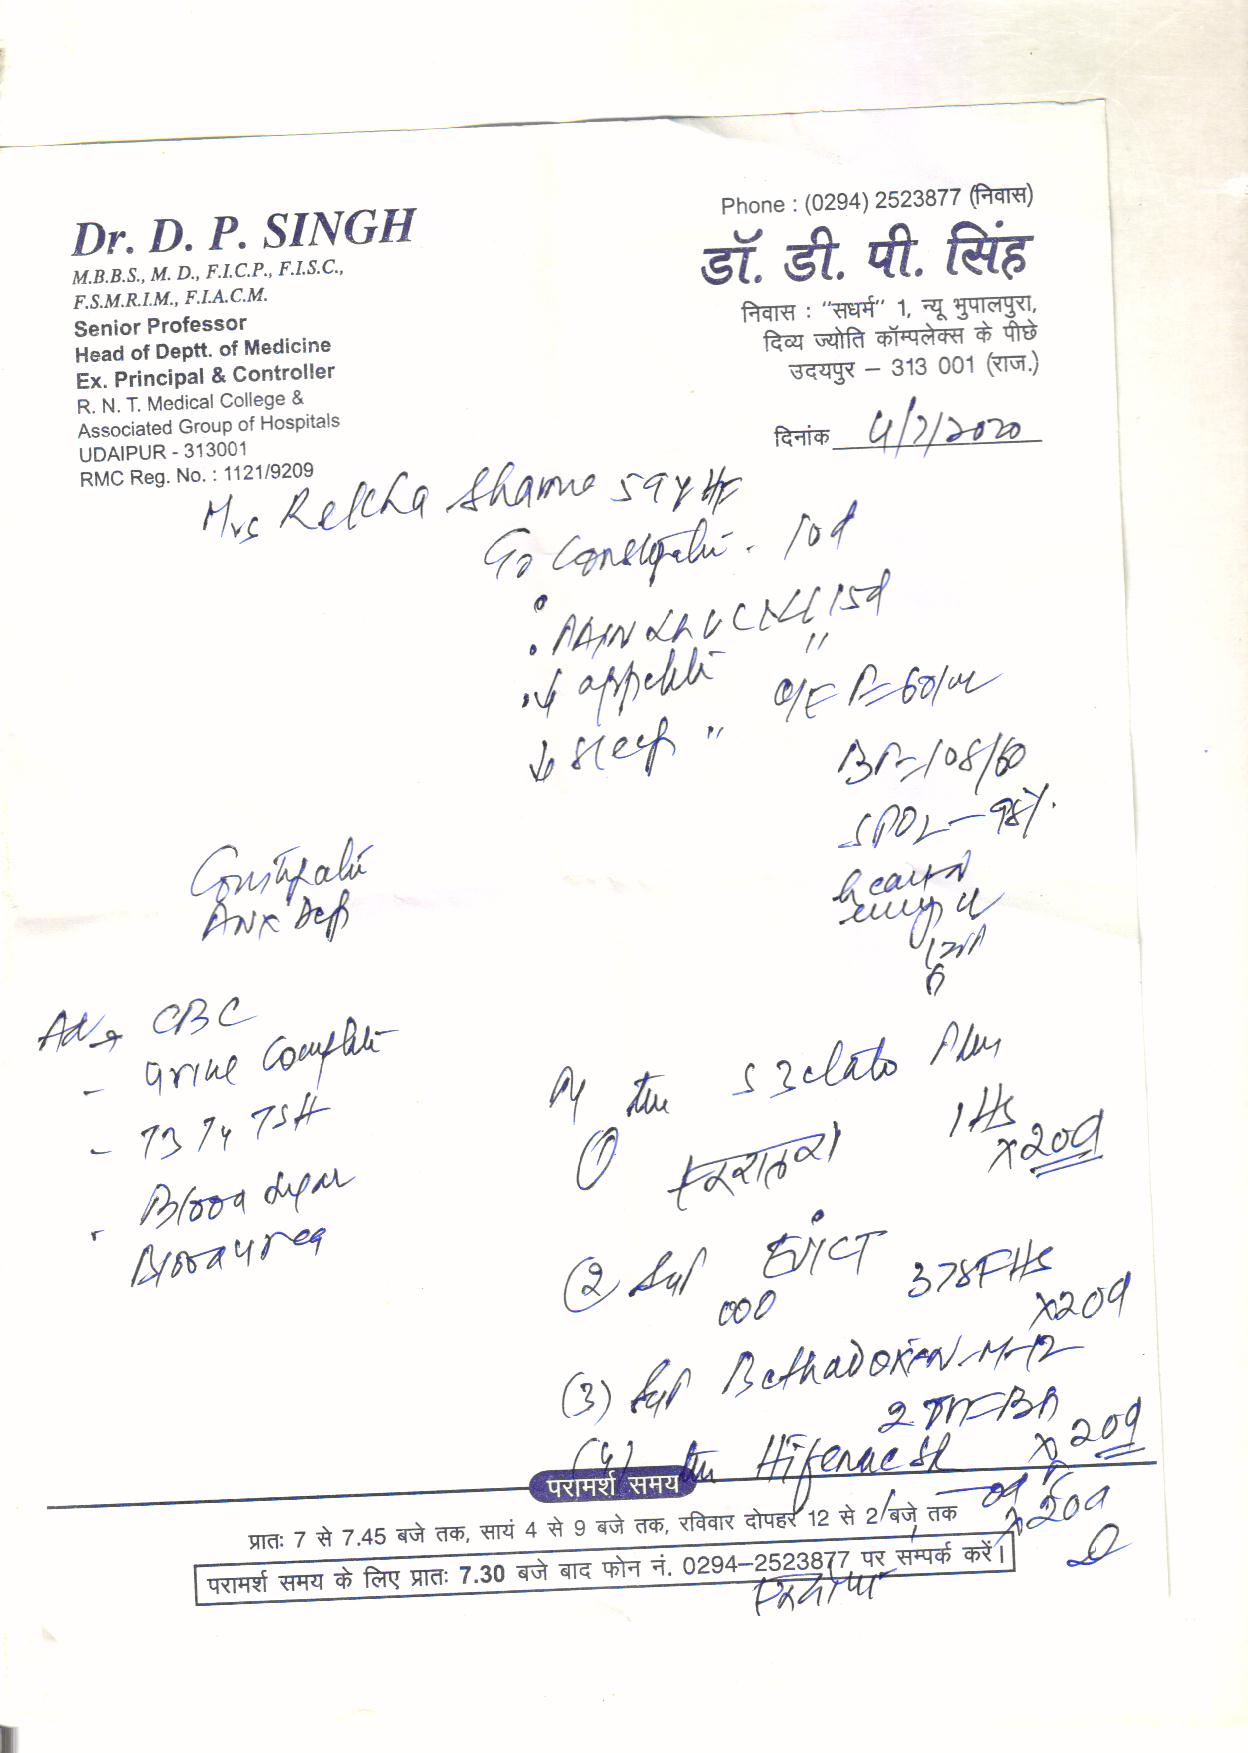 Phone : (0294) 2523877 (निवास)
Dr. D. P. SINGH
M.B.B.S., M. D., F.I.C.P., F.I.S.C.,
F.S.M.R.I.M., F.I.A.C.M.
Senior Professor
Head of Deptt. of Medicine
Ex. Principal & Controller
R. N. T. Medical College &
Associated Group of Hospitals
UDAIPUR - 313001
RMC Reg. No. : 1121/9209
डॉ. डी. पी. सिंह
निवास : "सधर्म" 1, न्यू भुपालपुरा,
दिव्य ज्योति कॉम्पलेक्स के पीछे
उदयपुर – 313 001 (राज.)
दिनांक 4/7/2020
Mrs Rekha Sharma 59y
Constipati - 10d
PAIN 15d
↓ appetite "
↓ sleep "
O/E P=60/m
BP=108/60
SPO2 - 98%
Constipati
Adv → CBC
- Urine Complete
- T3 T4 TSH
Blood Sugar
Blood Urea
①
Plus
1 HS
x 20d
(2) Syp EVICT
HS
x 20d
(3) Syp BethadoXin-M-12
2 TSF BD
x 20d
(4) Hifenac SR
x 20d
परामर्श समय
प्रातः 7 से 7.45 बजे तक, सायं 4 से 9 बजे तक, रविवार दोपहर 12 से 2 बजे तक
परामर्श समय के लिए प्रातः 7.30 बजे बाद फोन नं. 0294–2523877 पर सम्पर्क करें।